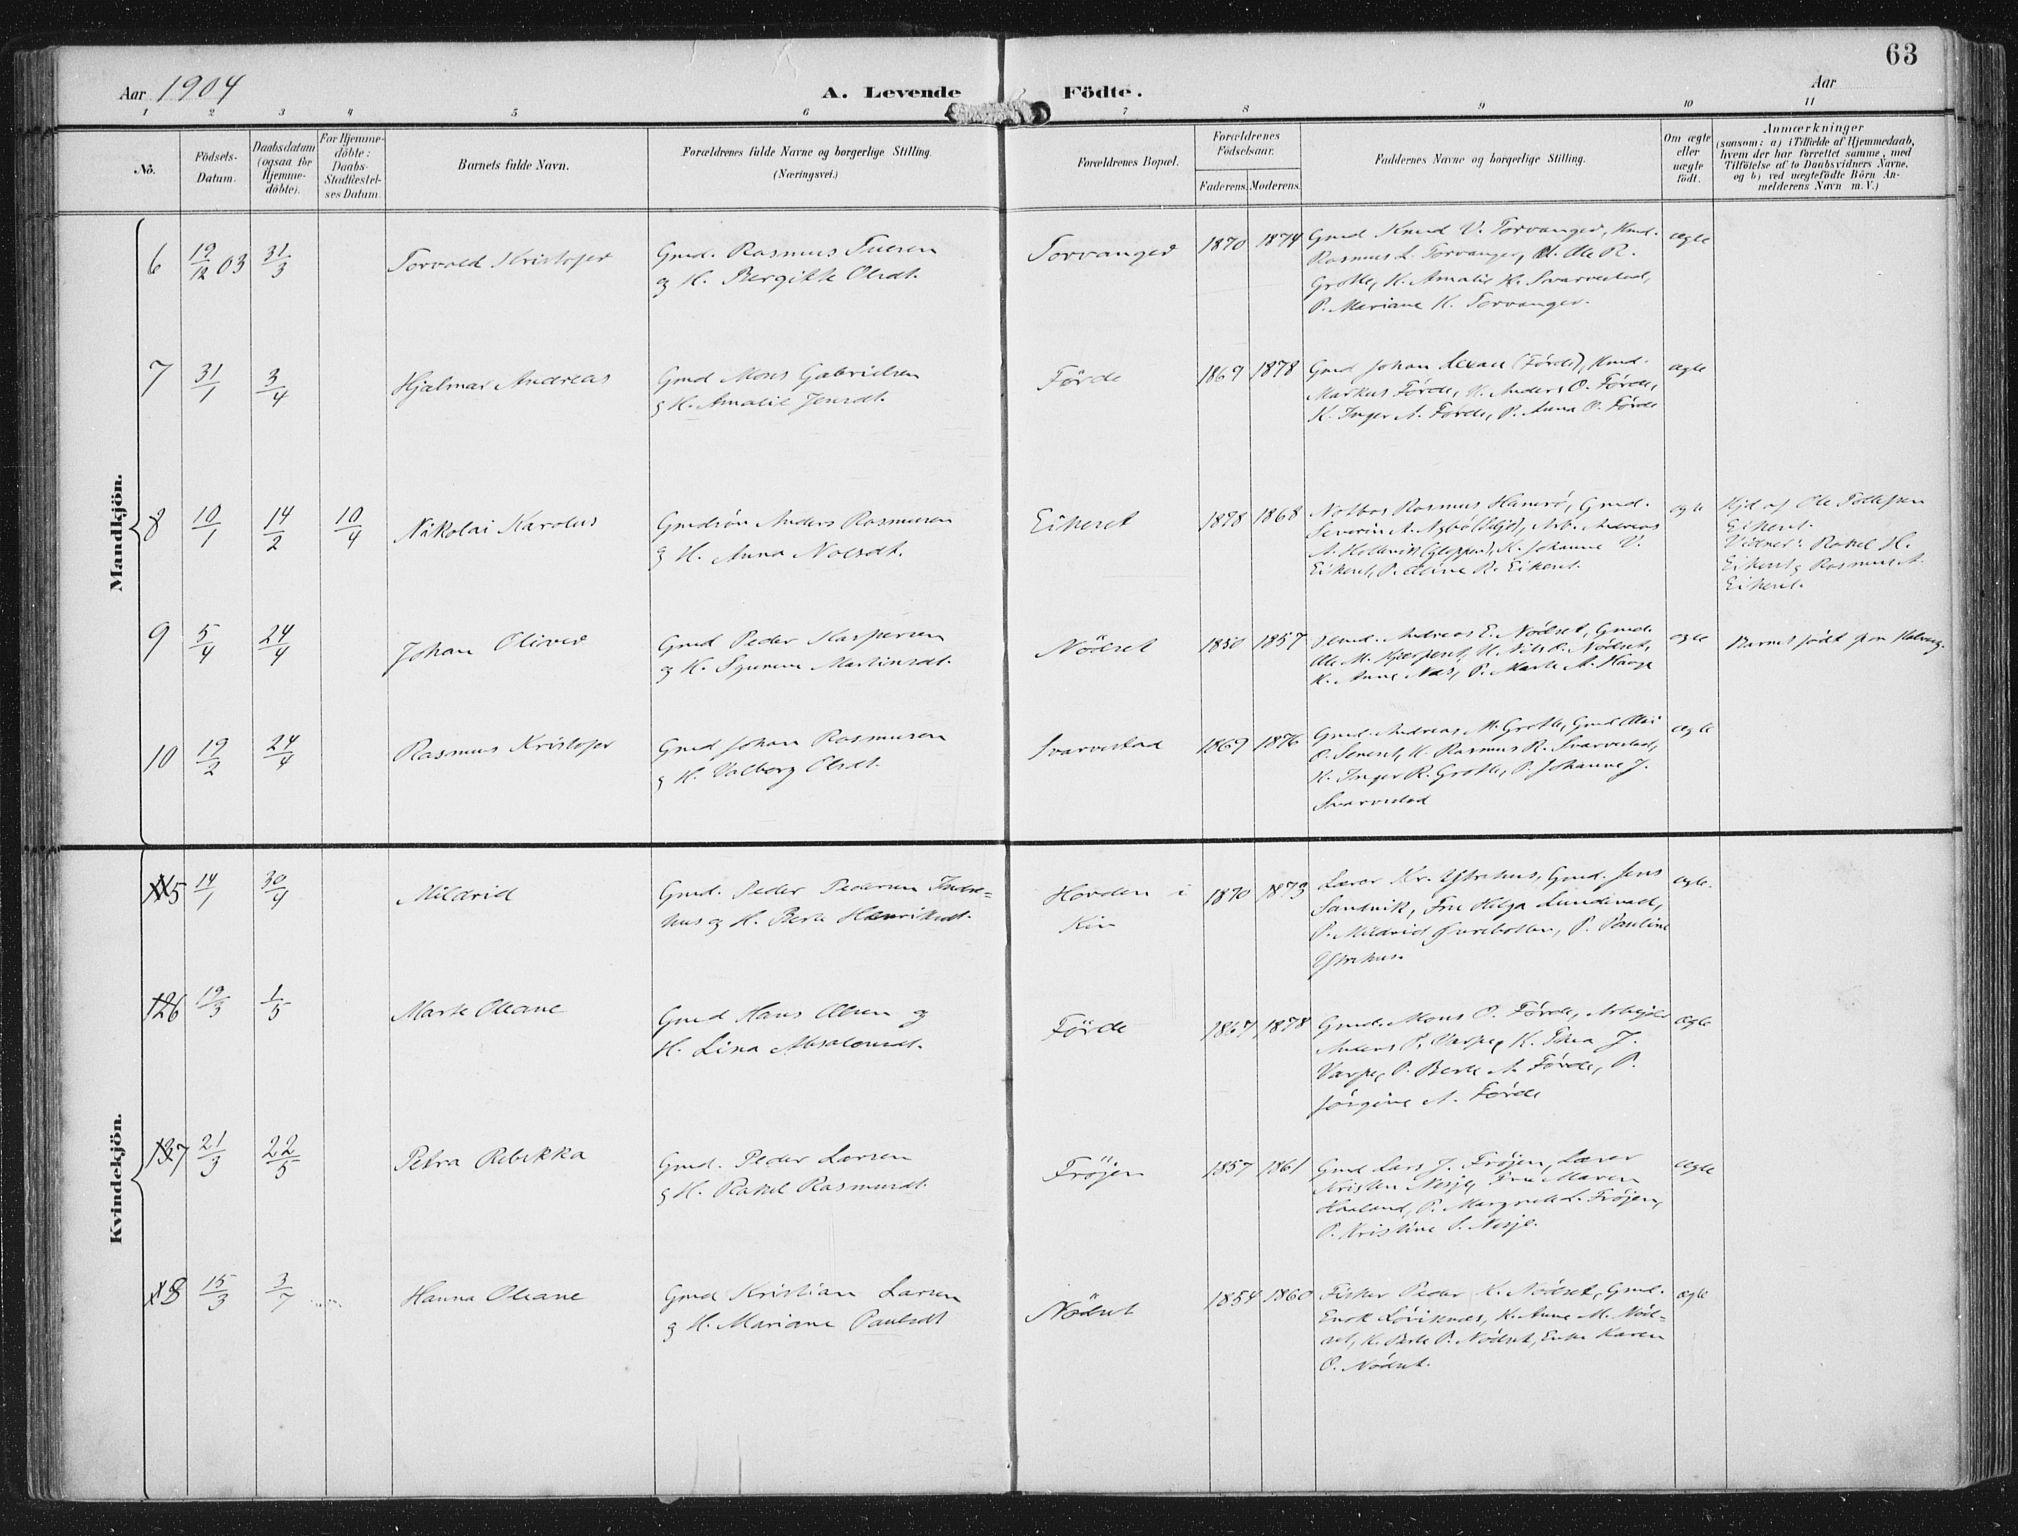 63
Aar 1904
A. Levende Födte.
Aar
1 2 3 4 5 6 7 8 9 10 11
No.
Födsels-Datum.
Daabsdatum (ogsaa for Hjemmedöbte).
For Hjemmedöbte: Daabs Stadfæstelses Datum.
Barnets fulde Navn.
Forældrenes fulde Navne og borgerlige Stilling.
(Næringsvei.)
Forældrenes Bopæl.
Forældrenes Födselsaar.
Faderens. Moderens.
Faddernes Navne og borgerlige Stilling.
Om ægte eller uægte födt.
Anmærkninger
(saasom: a) i Tilfælde af Hjemmedaab, hvem der har forrettet samme, med Tilföielse af to Daabsvidners Navne, og b) ved uægtefödte Börn Anmelderens Navn m. V.)
Mandkjön.
6 19/12 03 31/3 Torvald Kristofer
Gmd. Rasmus
og H. Bergitte Olsdt.
Torvanger 1870 1874
Gmd Knud V. Torvanger, Kmd.
Rasmus L. Torvanger, U. Ole R.
Grotle, K. Amalie K. Svarvestad,
P. Mariane K. Torvanger.
ægte
7 31/1 3/4 Hjalmar Andreas
Gmd Mons Gabrielsen
og H. Amalie Jensdt.
Förde 1869 1878
Gmd Johan (Förde), Kmd.
Markus Förde, U. Anders O. Förde,
K. Inger A. Förde, P. Anna O. Förde
ægte
8 10/1 14/2 10/4 Nikolai Karolus
Gmdsön Anders Rasmusen
og H. Anna
Eikeset 1878 1868
Rasmus Hamrö, Gmd.
Severin A. Arb. Andreas
A. K. Johanne V.
Eikeset, P. R. Eikeset.
ægte
Hjd af Ole Tollefsen
Eikeset.
Vidner: Rakel H.
Eikeset og Rasmus A.
Eikeset.
9 5/4 24/4 Johan Oliver
Gmd Peder Kaspersen
og H. Martinsdt.
Nödset 1850 1857
Andreas E. Nödset, Gmd.
Ole M. U. Nils R. Nödset,
K. Anne Næs, P. Marte A.
ægte
Barnet födt paa
10 19/2 24/4 Rasmus Kristofer
Gmd Johan Rasmusen
og H. Valborg Olsdt.
Svarvestad 1869 1876
Gmd. Andreas M. Grotle, Gmd
O. U. Rasmus R. Svarvestad,
K. Inger R. Grotle, P. Johanne J.
Svarvestad
ægte
Kvindekjön.
5 14/1 30/4 Mildrid
Gmd. Peder Pedersen Indre-
hus og H. Berte Henriksdt.
Hovden i
Kin
1870 1873
Lærer Kr. Ystrehus, Gmd. Jens
Sandvik, Fru Helga Lundevad,
P. Mildrid P. Pauline
Ystrehus.
ægte.
6 19/3 1/5 Marte Oleane
Gmd Hans Olsen og
H. Lina Absalonsdt.
Förde 1867 1878
Gmd. Mons O. Förde, Arbejder
Anders P. Varpe, K. Thea J.
Varpe, P. Berte A. Förde, P.
Jörgine A. Förde
ægte
7 21/3 22/5 Petra Rebekka
Gmd. Peder Larsen
og H. Rakel Rasmusdt.
Fröjen 1857 1861
Gmd Lars J. Fröjen, Lærer
Kristen Nesje, Fru Maren
Haaland, P. Margrete L. Fröjen,
P. Kristine S. Nesje.
ægte
8 15/3 3/7 Hanna Oleane
Gmd Kristian Larsen
og H. Mariane Paulsdt
Nödset 1854 1860
Fisker Peder K. Nödset, Gmd.
Enok K. Anne M. Nöd-
set, K. Berte P. Nödset, Enke Karen
O. Nödset.
ægte